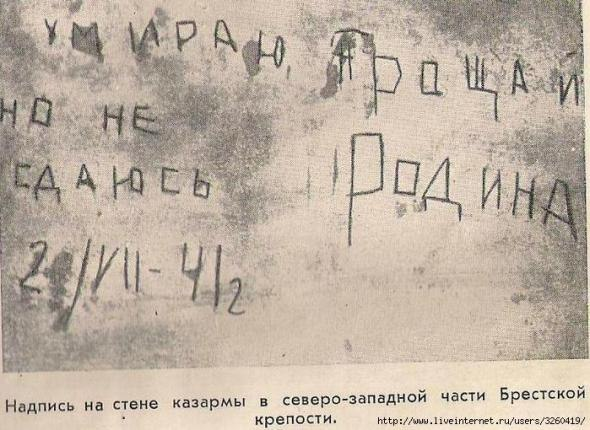 УМИРАЮ,
НО НЕ
СДАЮСЬ
ПРОЩАЙ
РОДИНА
20/VII-41г
Надпись на стене казармы в северо-западной части Брестской
крепости.
http://www.liveinternet.ru/users/3260419/